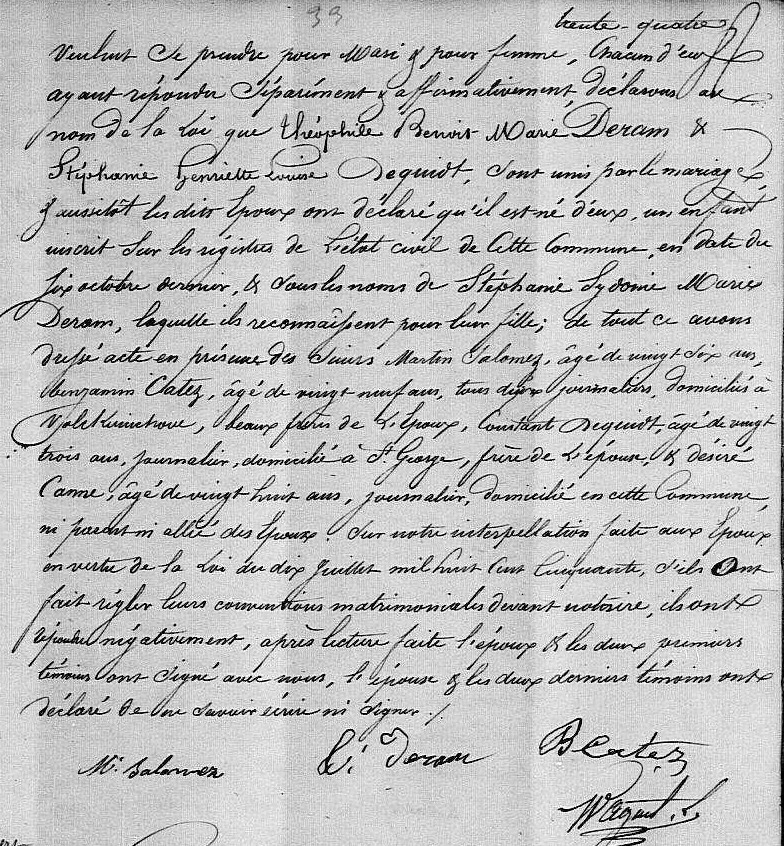 33
trente-quatre
Veulent se prendre pour Mari & pour femme, Chacun d'eux
ayant répondu Séparément & affirmativement, déclarons au
nom de la Loi que Théophile Benoit Marie Deram &
Stéphanie henriette Louise Dequidt, Sont unis par le mariage
& aussitôt les dits Epoux ont déclaré qu'il est né d'eux, un enfant
inscrit Sur les régistres de L'état civil de Cette Commune, en date du
Six octobre dernier, & Sous les noms de Stéphanie Sydonie Marie
Deram, laquelle ils reconnaissent pour leur fille; de tout ce avons
dressé acte en présence des Sieurs Martin Salomez, âgé de vingt Six ans,
benjamin Catez, âgé de vingt neuf ans, tous deux journaliers, domiciliés à
Volckerinckhove, beaux frères de L'Epoux, Constant Dequidt, âgé de vingt
trois ans, journalier, domicilié à St. George, frère de L'épouse, & désiré
Canne, âgé de vingt huit ans, journalier, domicilié en cette Commune,
ni parent ni allié des Epoux. Sur notre interpellation faite aux Epoux
en vertu de la Loi du dix Juillet mil huit Cent Cinquante, S'ils Ont
fait régler leurs conventions matrimoniales devant notaire, ils ont
répondu négativement, après lecture faite l'époux & les deux premiers
témoins ont Signé avec nous, l'épouse & les deux derniers témoins ont
déclaré de ne Savoir écrire ni Signer ./.
Mn Salomez
Deram
B Catez